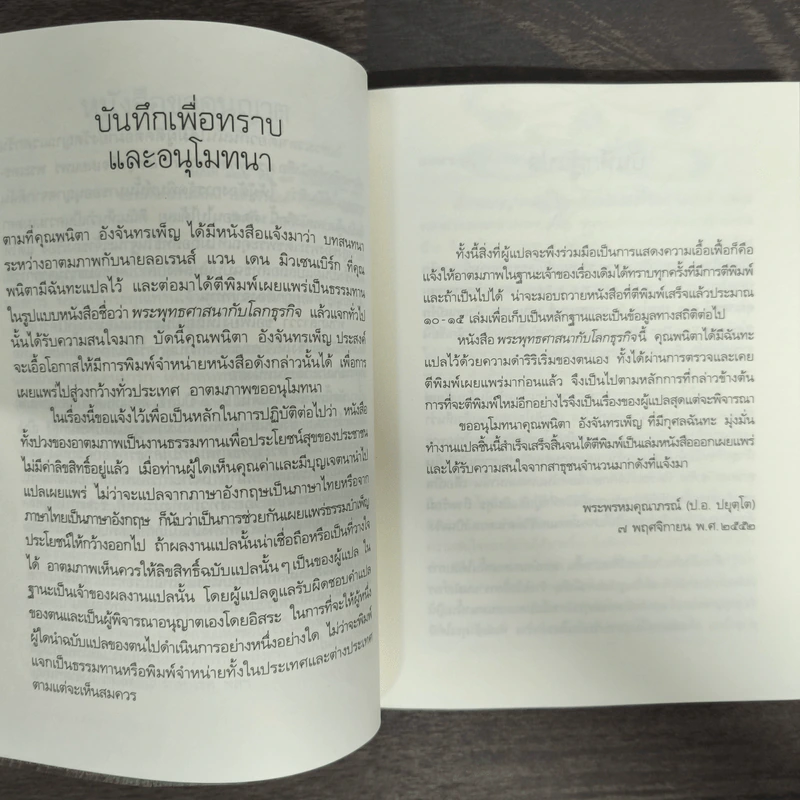 บันทึกเพื่อทราบ
และอนุโมทนา
ตามที่คุณพนิตา อังจันทรเพ็ญ ได้มีหนังสือแจ้งมาว่า บทสนทนา
ระหว่างอาตมภาพกับนายลอเรนส์ แวน เดน มิวเซนเบิร์ก ที่คุณ
พนิตามีฉันทะแปลไว้ และต่อมาได้ตีพิมพ์เผยแพร่เป็นธรรมทาน
ในรูปแบบหนังสือชื่อว่า พระพุทธศาสนากับโลกธุรกิจ แล้วแจกทั่วไป
นั้นได้รับความสนใจมาก บัดนี้คุณพนิตา อังจันทรเพ็ญ ประสงค์
จะเอื้อโอกาสให้มีการพิมพ์จำหน่ายหนังสือดังกล่าวนั้นได้ เพื่อการ
เผยแพร่ไปสู่วงกว้างทั่วประเทศ อาตมภาพขออนุโมทนา
ในเรื่องนี้ขอแจ้งไว้เพื่อเป็นหลักในการปฏิบัติต่อไปว่า หนังสือ
ทั้งปวงของอาตมภาพเป็นงานธรรมทานเพื่อประโยชน์สุขของประชาชน
ไม่มีค่าลิขสิทธิ์อยู่แล้ว เมื่อท่านผู้ใดเห็นคุณค่าและมีบุญเจตนานำไป
แปลเผยแพร่ ไม่ว่าจะแปลจากภาษาอังกฤษเป็นภาษาไทยหรือจาก
ภาษาไทยเป็นภาษาอังกฤษ ก็นับว่าเป็นการช่วยกันเผยแพร่ธรรมบำเพ็ญ
ประโยชน์ให้กว้างออกไป ถ้าผลงานแปลนั้นน่าเชื่อถือหรือเป็นที่วางใจ
ได้ อาตมภาพเห็นควรให้ลิขสิทธิ์ฉบับแปลนั้น ๆ เป็นของผู้แปล ใน
ฐานะเป็นเจ้าของผลงานแปลนั้น โดยผู้แปลดูแลรับผิดชอบคำแปล
ของตนและเป็นผู้พิจารณาอนุญาตเองโดยอิสระ ในการที่จะให้ผู้หนึ่ง
ผู้ใดนำฉบับแปลของตนไปดำเนินการอย่างหนึ่งอย่างใด ไม่ว่าจะพิมพ์
แจกเป็นธรรมทานหรือพิมพ์จำหน่ายทั้งในประเทศและต่างประเทศ
ตามแต่จะเห็นสมควร
ทั้งนี้สิ่งที่ผู้แปลจะพึงร่วมมือเป็นการแสดงความเอื้อเฟื้อก็คือ
แจ้งให้อาตมภาพในฐานะเจ้าของเรื่องเดิมได้ทราบทุกครั้งที่มีการตีพิมพ์
และถ้าเป็นไปได้ น่าจะมอบถวายหนังสือที่ตีพิมพ์เสร็จแล้วประมาณ
๑๐-๑๕ เล่มเพื่อเก็บเป็นหลักฐานและเป็นข้อมูลทางสถิติต่อไป
หนังสือ พระพุทธศาสนากับโลกธุรกิจนี้ คุณพนิตาได้มีฉันทะ
แปลไว้ด้วยความดำริริเริ่มของตนเอง ทั้งได้ผ่านการตรวจและเคย
ตีพิมพ์เผยแพร่มาก่อนแล้ว จึงเป็นไปตามหลักการที่กล่าวข้างต้น
การที่จะตีพิมพ์ใหม่อีกอย่างไรจึงเป็นเรื่องของผู้แปลสุดแต่จะพิจารณา
ขออนุโมทนาคุณพนิตา อังจันทรเพ็ญ ที่มีกุศลฉันทะ มุ่งมั่น
ทำงานแปลชิ้นนี้สำเร็จเสร็จสิ้นจนได้ตีพิมพ์เป็นเล่มหนังสือออกเผยแพร่
และได้รับความสนใจจากสาธุชนจำนวนมากดังที่แจ้งมา
พระพรหมคุณาภรณ์ (ป.อ. ปยุตฺโต)
๗ พฤศจิกายน พ.ศ. ๒๕๕๒